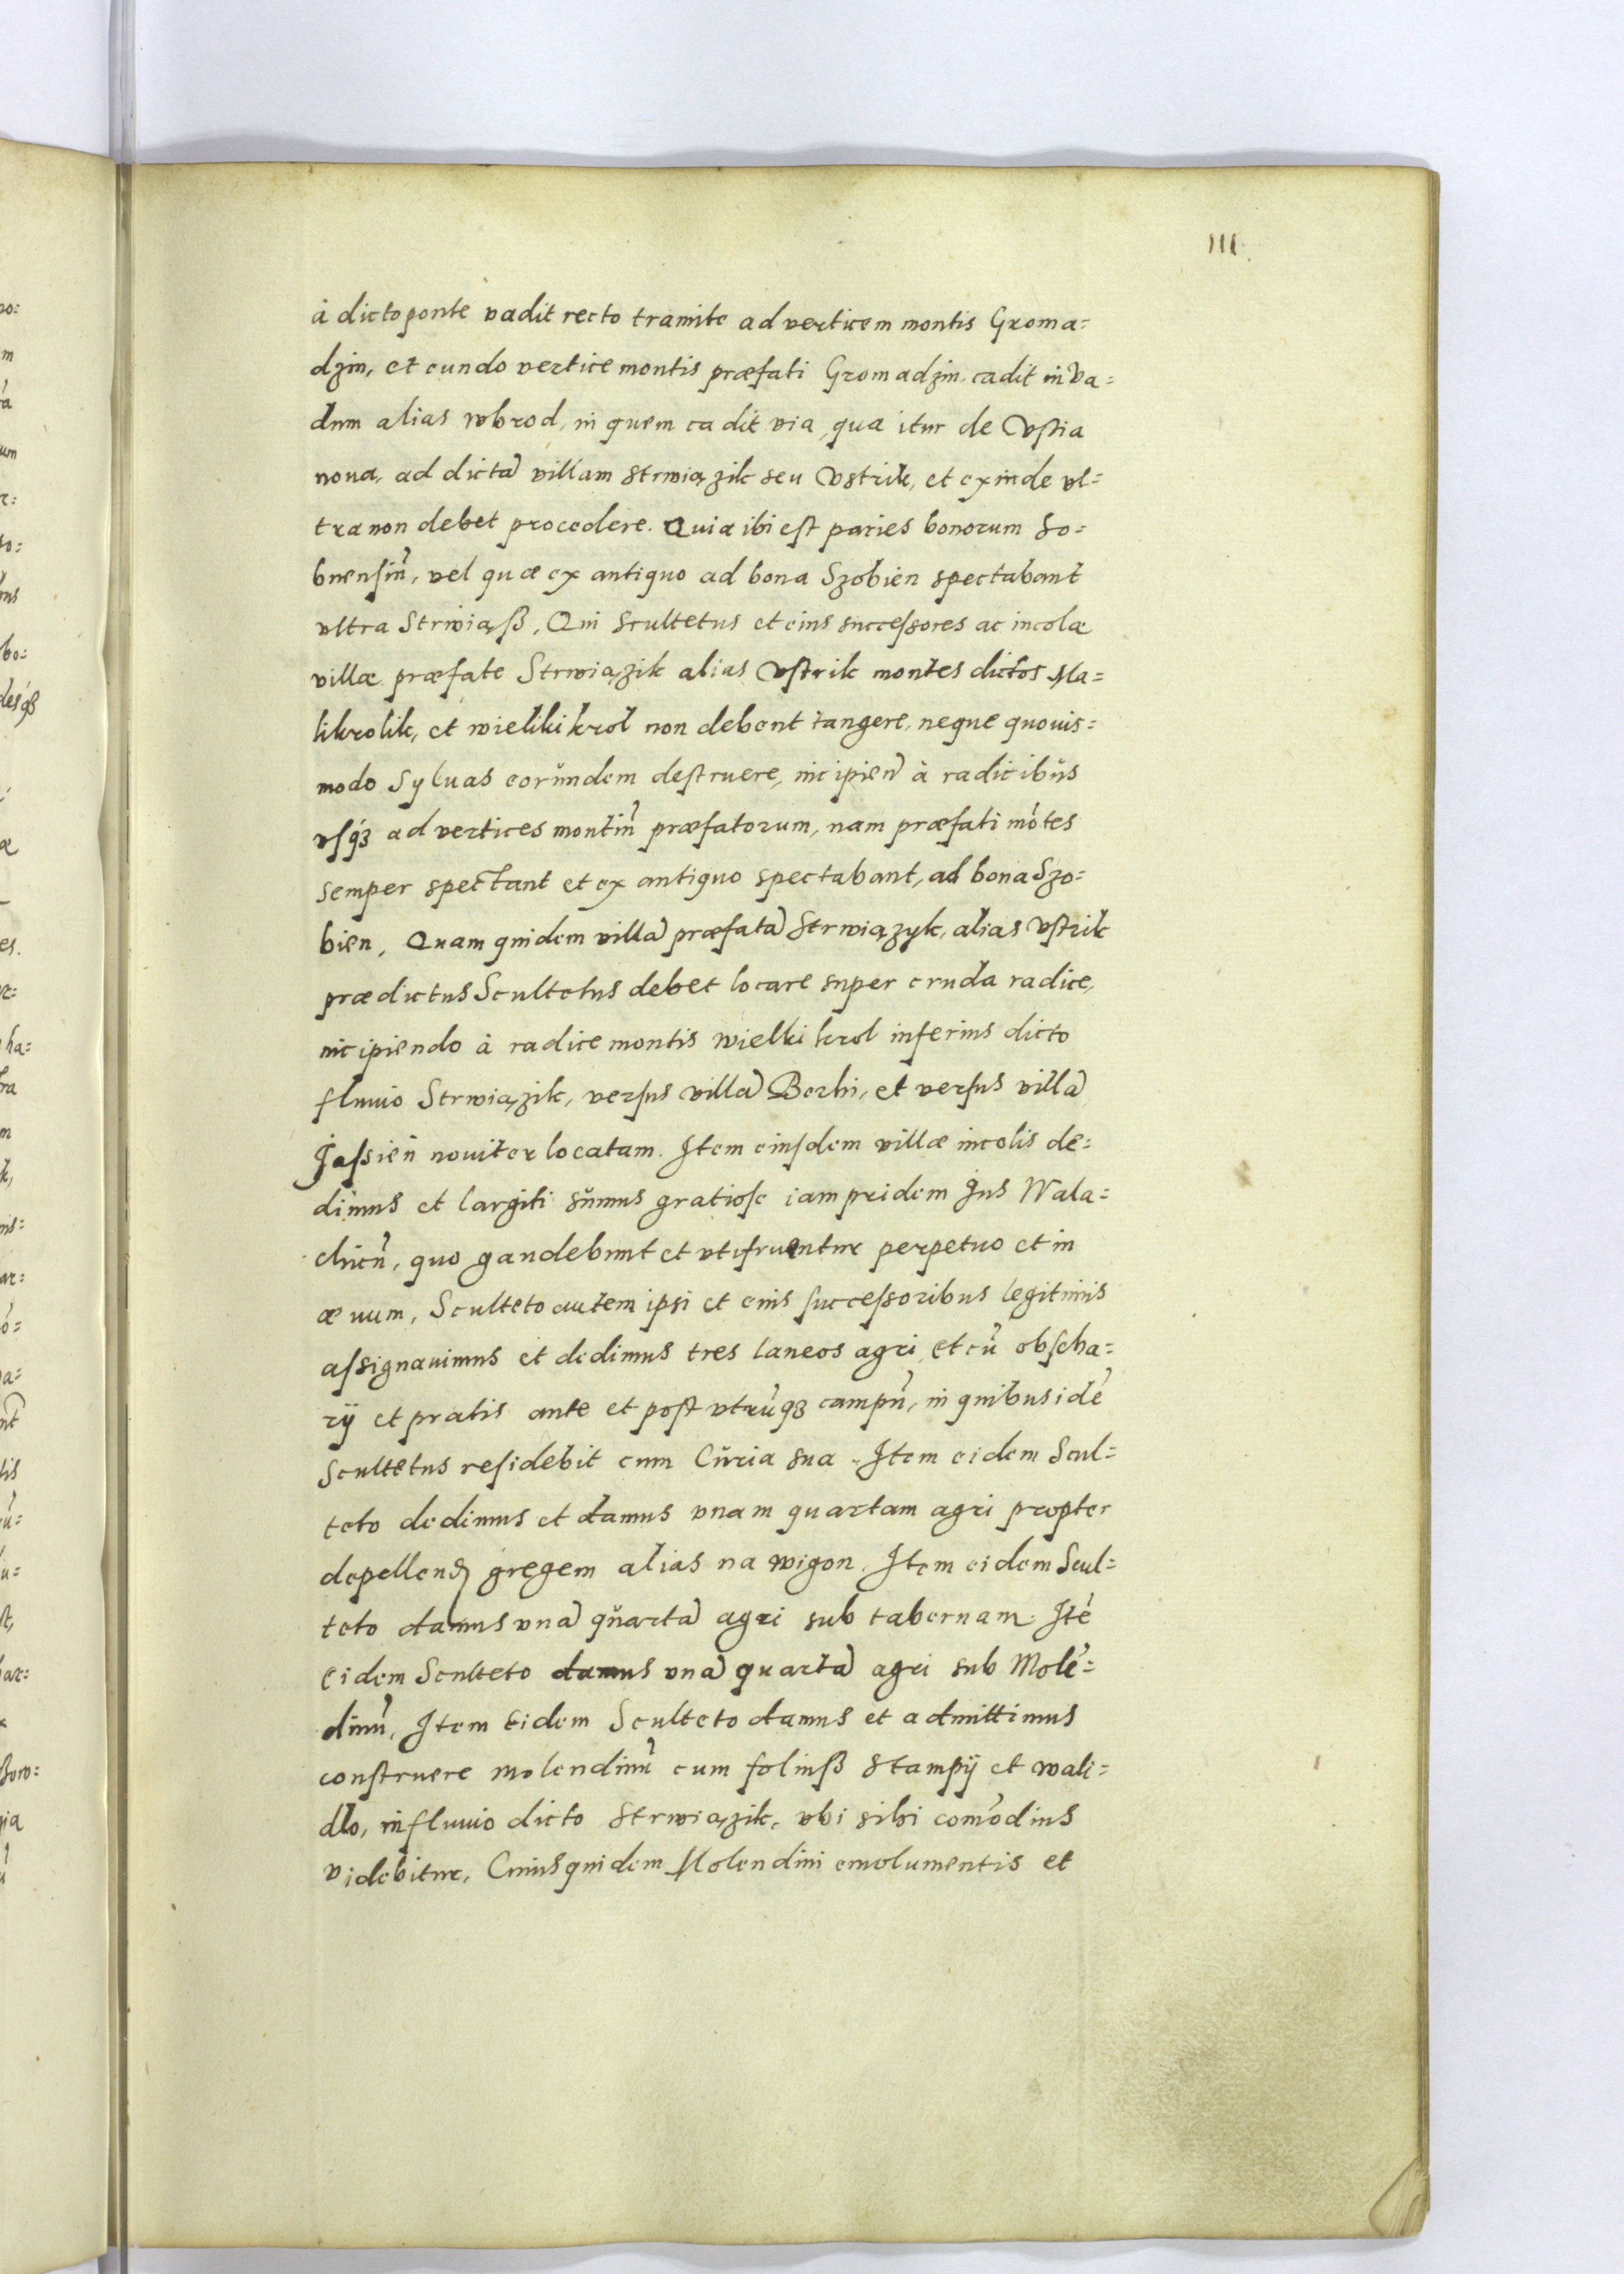 111.
à dicto ponte vadit recto tramite ad verticem montis Groma=
dzin, et eundo vertice montis præfati Gromadzin, cadit in va=
dum alias wbrod, in quem cadit via, qua itur de Vstia
noua, ad dictã villam Strwiązik seu Vstrik, et exinde vl=
tra non debet procedere. Quia ibi est paries bonorum So=
bnensiũ, vel quæ ex antiquo ad bona Szobien spectabant
vltra Strwiąß, Qui Scultetus et eius successores ac incolæ
villæ præfate Strwiązik alias Vstrik montes dictos Ma=
likrolik, et wieliki krol non debent tangere, neque quouis=
modo Syluas eorũndem destruere, incipienđ à radicibũs
vsqȝ ad vertices montiũ præfatorum, nam præfati mõtes
semper spectant et ex antiquo spectabant, ad bona Szo=
bien, Quam quidem villã præfatã Strwiązyk, alias Vstrik
prædictus Scultetus debet locare super cruda radice,
incipiendo à radice montis wielki krol inferius dicto
fluuio Strwiązik, versus villã Berhi, et versus villã
Jassień nouiter locatam. Item eiusdem villæ incolis de=
dimus et largiti sũmus gratiose iampridem Jus Wala=
chicũ, quo gaudebunt et vtifruentur perpetuo et in
æuum, Sculteto autem ipsi et eius successoribus legitimis
assignauimus et dedimus tres laneos agri, et cũ obscha=
rÿ et pratis ante et post vtrũqȝ campũ, in quibus idẽ
Scultetus residebit cum Cũria sua. Item eidem Scul=
teto dedimus et damus vnam quartam agri propter
depellenđ gregem alias na wigon. Item eidem Scul=
teto damus vnã qũartã agri sub tabernam. Itẽ
eidem Sculteto damus vnã quartã agri sub Molẽ=
dinũ, Item eidem Sculteto damus et admittimus
construere molendinũ cum foliuß Stampÿ et wali=
dlo, in fluuio dicto Strwiązik, vbi sibi com̃odius
videbitur, Cuius quidem Molendini emolumentis et